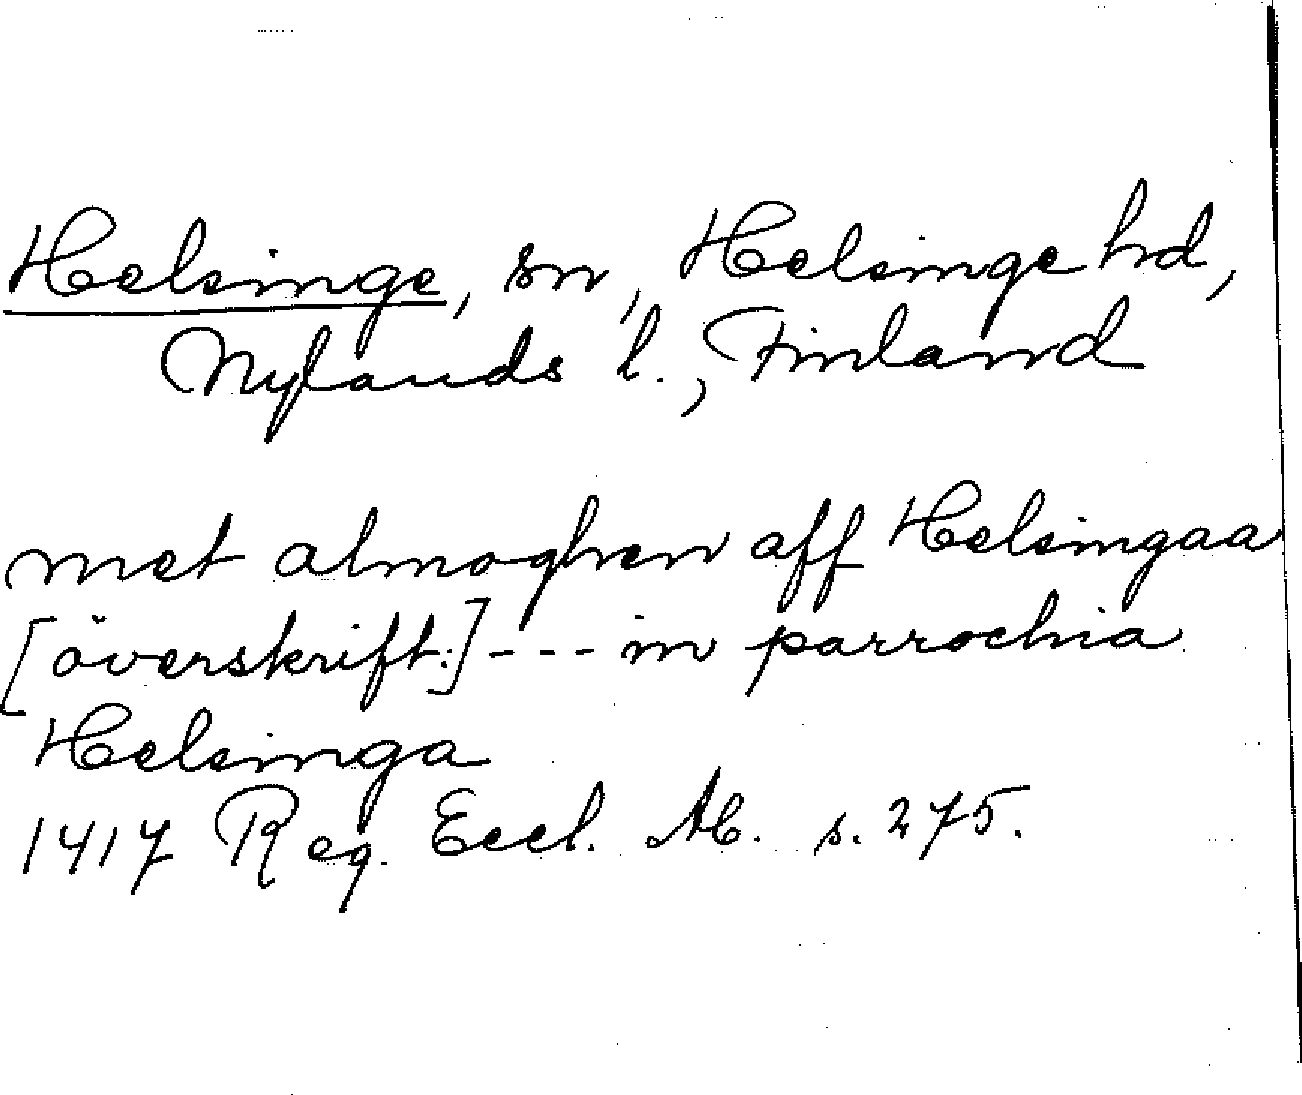 Helsinge, sn, Helsinge hd,
Nylands l., Finland
met almoghen aff Helsingaa
[överskift:] - - - in parrochia
Helsinga
1417 Reg. Eccl. Ab. s. 275.